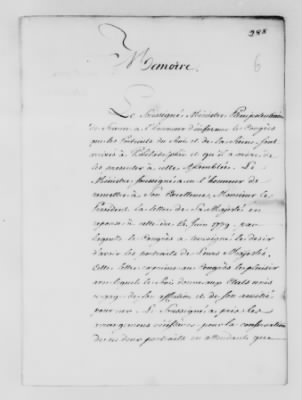 288
6
Memoire.
Le Soussigné Ministre Plenipotentiaire
de France a l'honneur d'informer le Congrès
que les Portraits du Roi et de la Reine sont
arrivés à Philadelphie et qu'il a ordre de
les presenter à cette Assemblée. Le
Ministre soussigné a eu l'honneur de
remettre à Son Excellence Monsieur le
President la lettre de Sa Majesté en
reponse à celle du 15 Juin 1779 par
laquelle le Congrès a temoigné le desir
d'avoir les portraits de Leurs Majestés.
Cette lettre exprime au Congrès le plaisir
avec lequel le Roi donne aux Etats unis
ce gage de Son affection et de Son amitié
pour eux. Le Soussigné a pris les
arrangemens necessaires pour la conservation
de ces deux portraits en attendant que